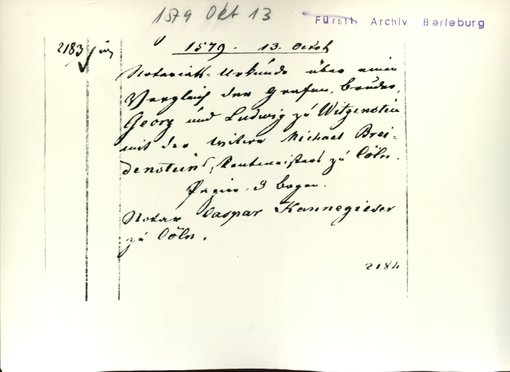 1579 Okt 13
Fürstl. Archiv Berleburg
2183
1579. 13. Octob
Notariats-Urkunde über einen
Vergleich der Grafen, Brüder,
Georg und Ludwig zu Witgenstein
mit der Witwe Michael Brei-
densteins, Rentmeisters zu Cöln.
Papier. 3 Bogen.
Notar Caspar Kannegieser
zu Cöln.
2184